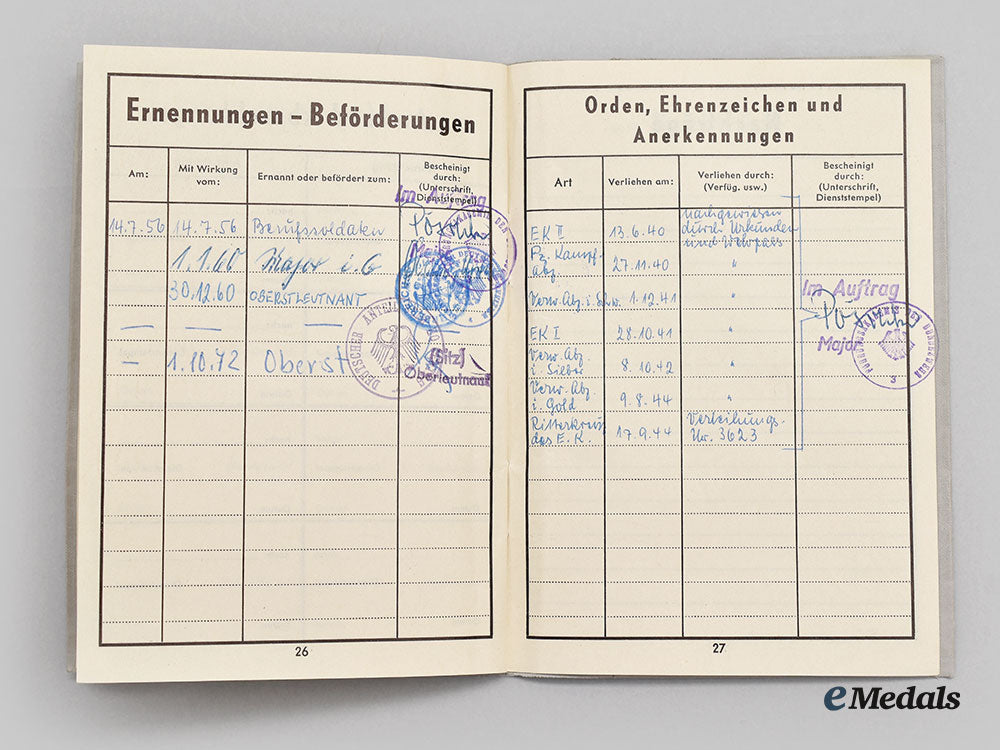 Ernennungen – Beförderungen
Am:
Mit Wirkung
vom:
Ernannt oder befördert zum:
Bescheinigt
durch:
(Unterschrift,
Dienststempel)
Im Auftrag
14.7.56 14.7.56 Berufssoldaten
Major
1.1.60 Major i.G
30.12.60 OBERSTLEUTNANT
— — —
– 1.10.72 Oberst
DEUTSCHER ANTEIL
(Sitz)
Oberleutnant
26
Orden, Ehrenzeichen und
Anerkennungen
Art
Verliehen am:
Verliehen durch:
(Verfüg. usw.)
Bescheinigt
durch:
(Unterschrift,
Dienststempel)
nachgewiesen
durch Urkunden
und Wehrpaß
EK II 13.6.40
Pz. Kampf-
abz. 27.11.40 "
Verw. Abz. i. Schw. 1.12.41 "
EK I 28.10.41 "
Verw. Abz.
i. Silber 8.10.42 "
Verw. Abz.
i. Gold 9.8.44 "
Ritterkreuz
des E.K. 17.9.44
Verleihungs-
Nr. 3623
Im Auftrag
Major
FÜHRUNGSAKADEMIE DER BUNDESWEHR
3
27
eMedals